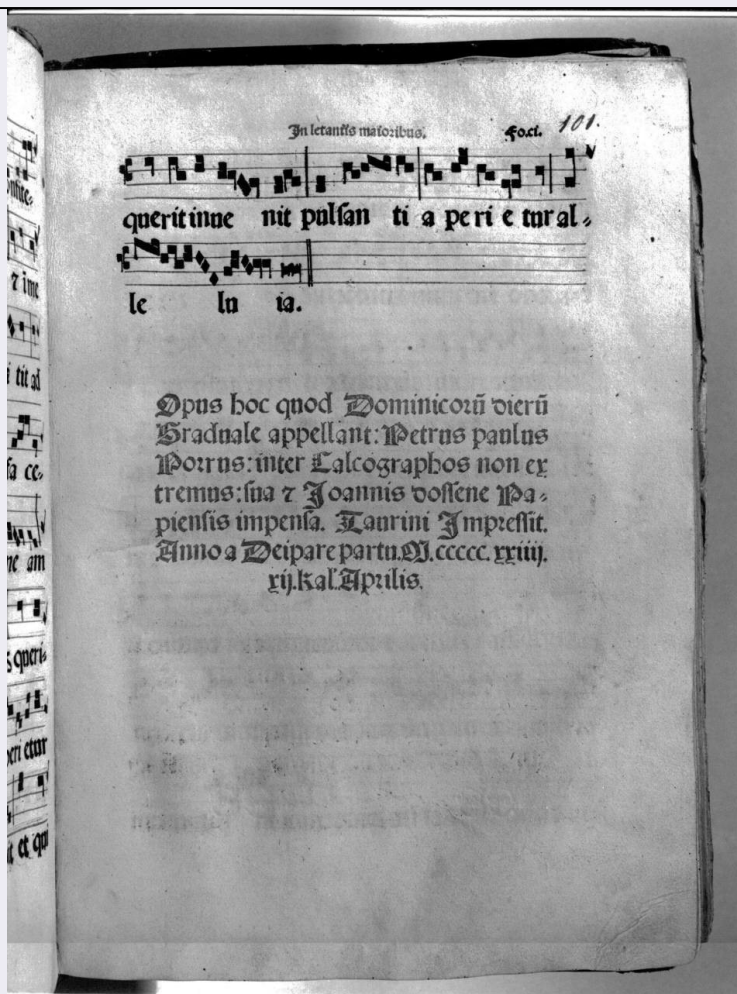 In letaniis maioribus. Fo.ci. 101.
querit inue nit pulsan ti a pe ri e tur al-
le lu ia.
Opus hoc quod Dominicorū dierū
Graduale appellant: Petrus paulus
Porrus: inter Calcographos non ex
tremus: sua ⁊ Joannis dossene Pa-
piensis impensa. Taurini Impressit.
Anno a Deipare partu. M. ccccc. xxiiij.
xij. kal'. Aprilis.
⁊ ime
i tit ad
sa ce-
ne am
s queri-
peri etur
it et qui